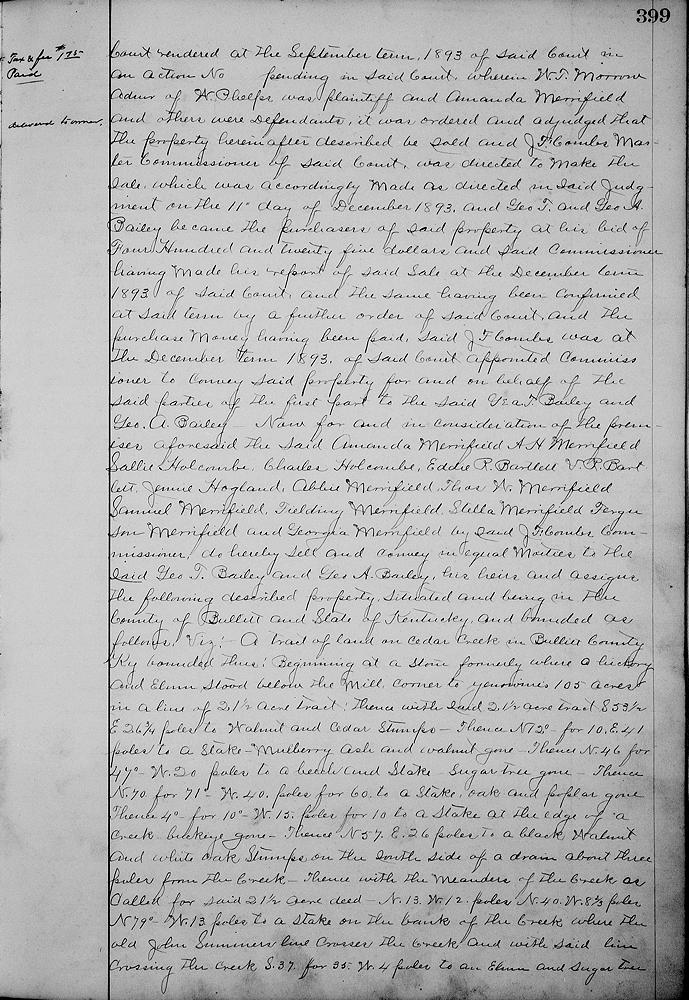 399
Tax & fee $1.75
Paid
delivered to owner.
Court rendered at the September term, 1893 of said Court in
an action No pending in said Court, wherein W.T. Morrow
Admr of W. Phelps was plaintiff and Amanda Merrifield
and others were Defendants, it was ordered and adjudged that
the property hereinafter described be sold and J F Combs Mas-
ter Commissioner of said Court, was directed to make the
Sale, which was accordingly made as directed in said Judg-
ment on the 11" day of December 1893, and Geo T. and Geo A.
Bailey became the purchasers of said property at his bid of
Four Hundred and twenty five dollars and said Commissioner
having made his report of said Sale at the December term
1893 of said Court, and the same having been confirmed
at said term by a further order of said Court, and the
purchase money having been paid, said J F Combs was at
the December term 1893, of said Court appointed Commiss
ioner to convey said property for and on behalf of the
said parties of the first part to the said Geo T. Bailey and
Geo. A. Bailey - Now for and in consideration of the prem-
ises aforesaid the said Amanda Merrifield A H Merrifield
Sallie Holcombe, Charles Holcombe, Eddie R. Bartlett V.P. Bart
lett, Jennie Hogland, Abbie Merrifield, Thos W. Merrifield
Samuel Merrifield, Fielding Merrifield, Stella Merrifield Fergu
son Merrifield and Georgia Merrifield by said J F Combs Com-
missioner, do hereby sell and convey in equal Moities to the
said Geo T. Bailey and Geo A. Bailey, his heirs and assigns
the following described property, situated and being in the
County of Bullitt and State of Kentucky, and bounded as
follows, Viz:- A tract of land on Cedar Creek in Bullitt County
Ky bounded thus: Beginning at a Stone formerly where a hickory
and Elmm stood below the Mill, corner to 105 acres
in a line of 21½ acre tract: thence with said 21½ acre tract S 53½
E 26¾ poles to Walnut and Cedar Stumps - Thence N 72° - for 10. E. 41
poles to a Stake - Mulberry Ash and walnut gone - Thence N. 46 for
47° - W. 20 poles to a beech and Stake - Sugar tree gone - Thence
N. 70 for 71 - W. 40. poles for 60. to a Stake, oak and poplar gone
Thence 4° - for 10° - W. 15. poles for 10 to a Stake at the edge of a
Creek buckeye gone - Thence N 57. E. 26 poles to a black Walnut
and white oak Stumps on the South side of a drain about three
poles from the Creek - Thence with the Meanders of the Creek as
Called for said 21½ acre deed - N. 13. W. 12. poles N. 40. W. 8⅔ poles
N 79° - W. 13 poles to a Stake on the bank of the Creek where the
old John Summers line Crosses the Creek and with said line
Crossing the Creek S. 37. for 35. W. 4 poles to an Elmm and Sugar tree